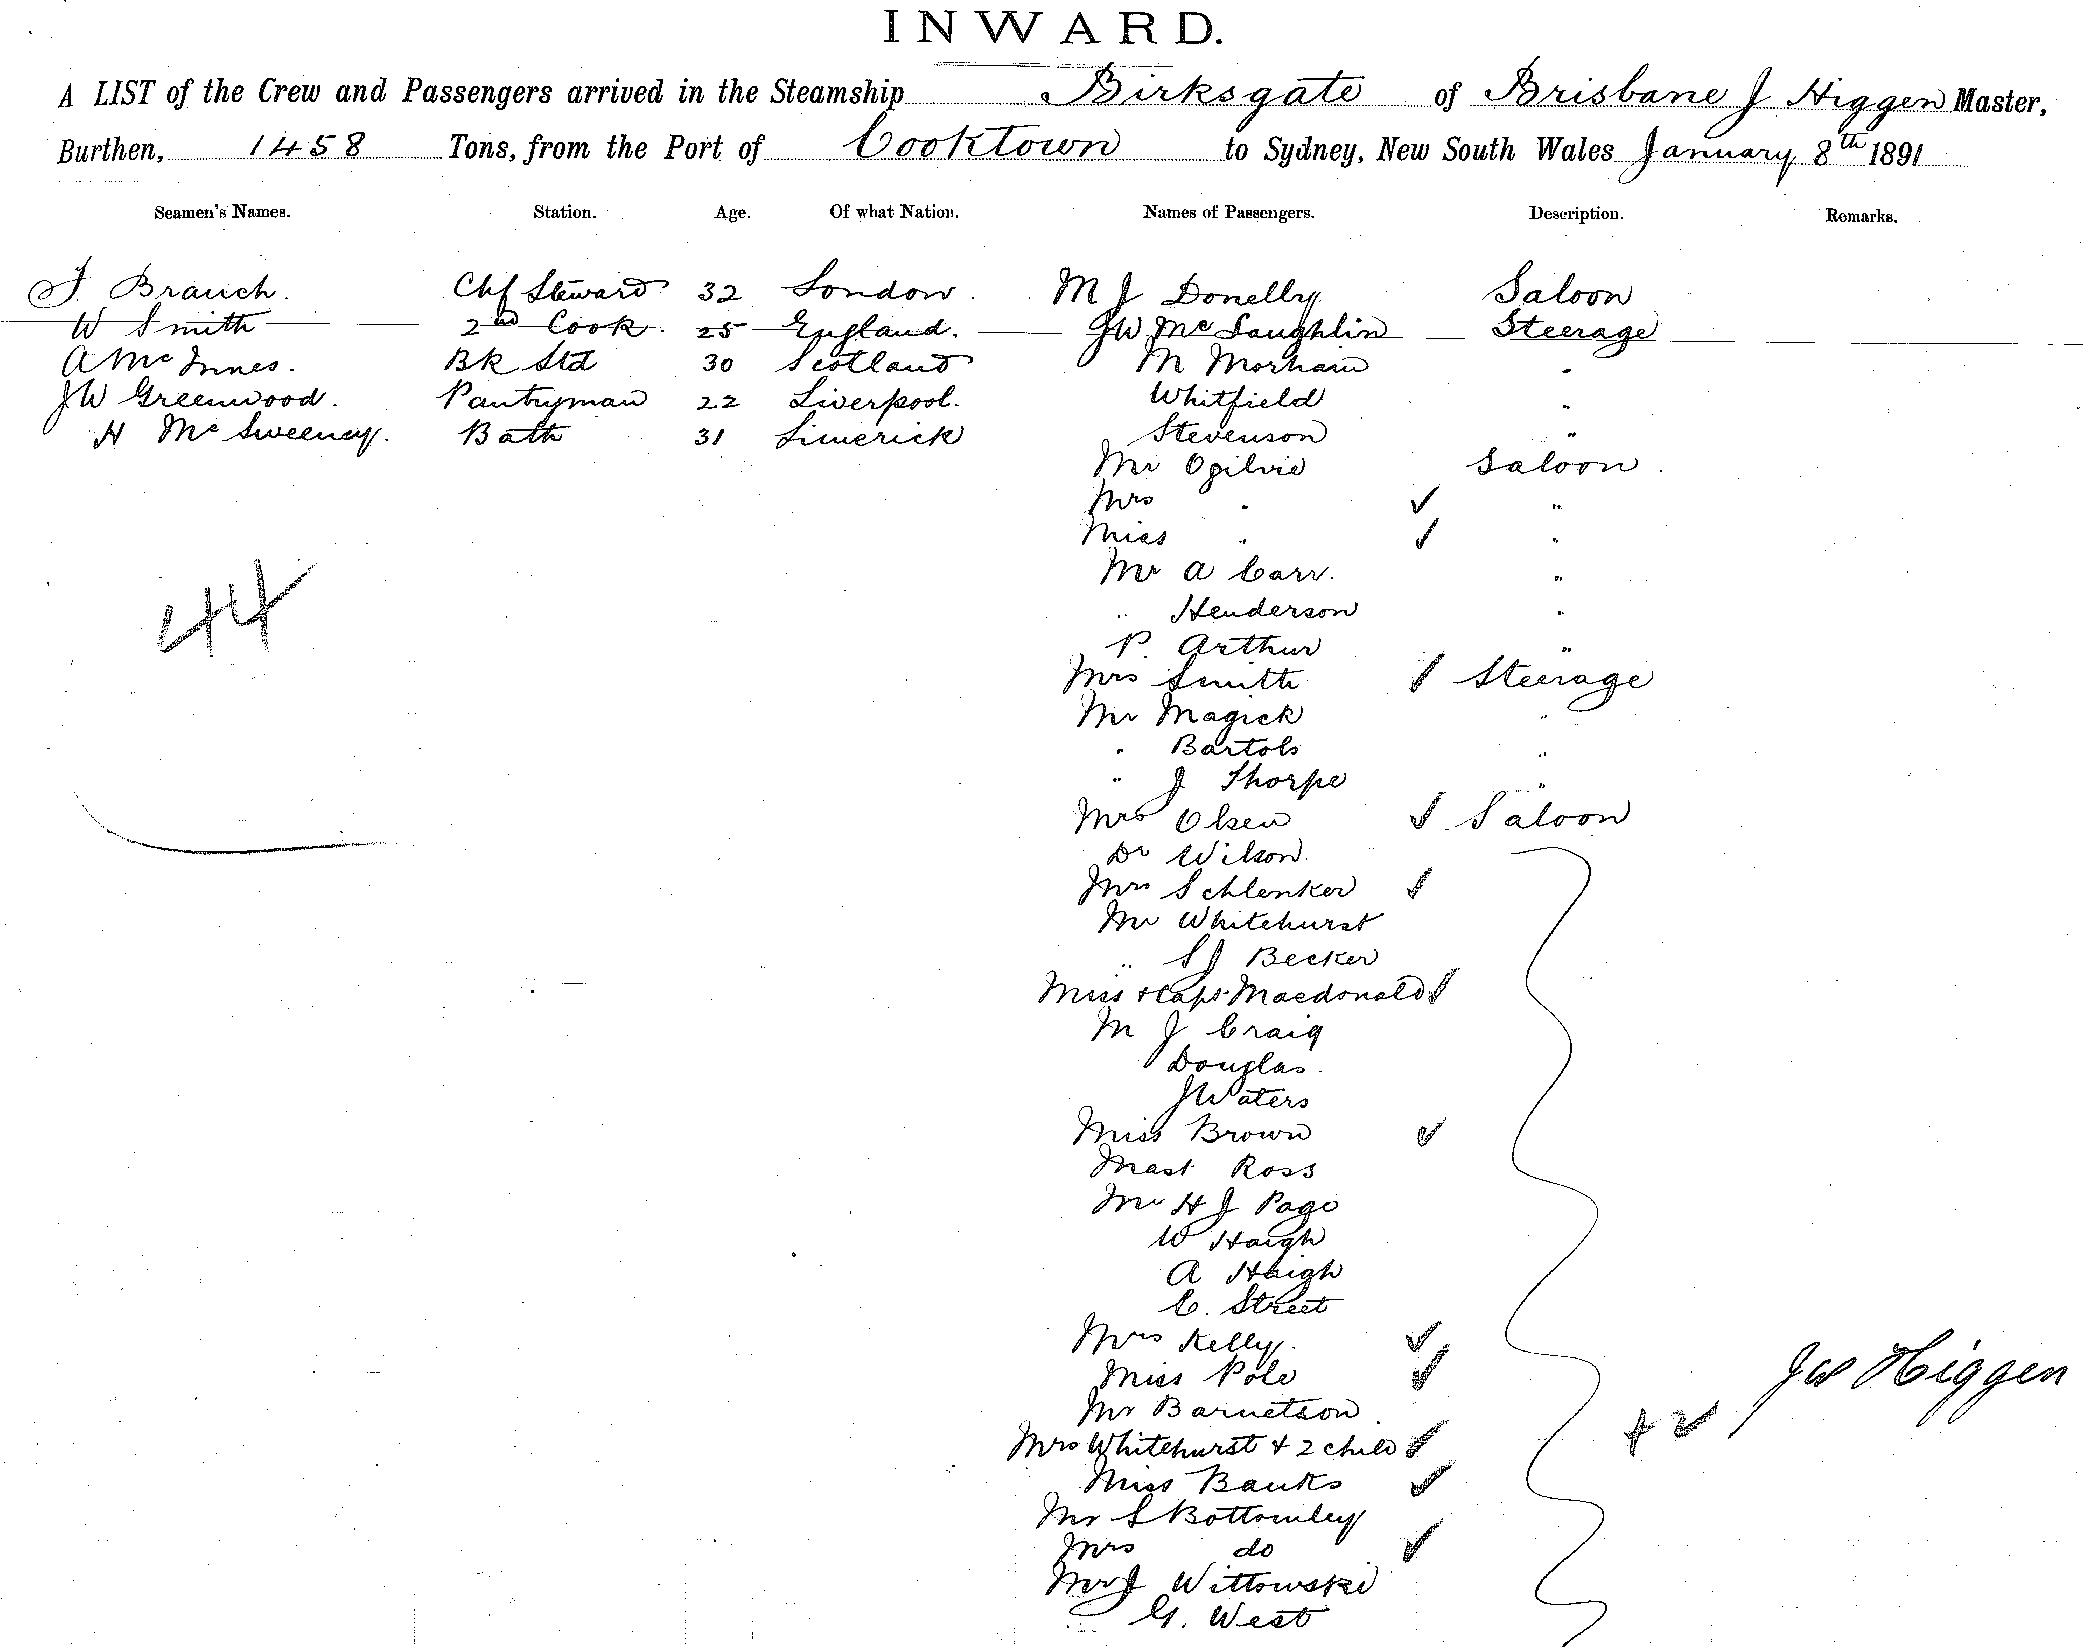 INWARD.
A LIST of the Crew and Passengers arrived in the Steamship Birksgate of Brisbane J Higgen Master,
Burthen, 1458 Tons, from the Port of Cooktown to Sydney, New South Wales January 8th 1891
Seamen's Names. Station. Age. Of what Nation. Names of Passengers. Description. Remarks.
J. Brauch. Chf Steward 32 London. M J Donelly Saloon
W Smith 2nd Cook. 25 England. JW McLaughlin Steerage
A McInnes. BK Std 30 Scotland M Morham "
JW Greenwood. Pantryman 22 Liverpool. Whitfield "
H McSweeney. Bath 31 Limerick Stevenson "
Mr Ogilvie Saloon.
Mrs " ✓ "
Miss " ✓ "
Mr A Carr. "
" Henderson "
P. Arthur "
44
Mrs Smith ✓ Steerage
Mr Magick "
" Bartols "
" J Thorpe "
Mrs Olsen ✓ Saloon
Dr Wilson.
Mrs Schlenker ✓
Mr Whitehurst
" S J Becker
Miss + Capt Macdonald ✓
M J Craig
Douglas.
J Waters
Miss Brown ✓
Mast Ross
Mr H J Page
W Haigh
A Haigh
C. Street
Mrs Kelly. ✓
Miss Pole ✓
JW Higgen
Mr Barnetson.
42
Mrs Whitehurst + 2 child ✓
Miss Banks ✓
Mr S Bottomley
Mrs do ✓
Mr J Wittowski
G. West